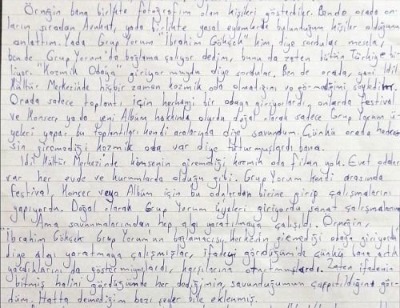 Örneğin bana birlikte fotoğrafım olan kişileri gösterdiler. Bende orada on-
ların sıradan Avukat, yada birlikte yasal eylemlerde bulunduğum kişiler olduğunu
anlattım. Yada Grup Yorum "İbrahim Gökçek" kim diye sordular mesela,
bende Grup Yorum'da bağlama çalıyor dedim, bunu da zaten bütün Türkiye bi-
liyor. "Kozmik Odaya giriyor muydu diye sordular. Ben de orada, yani İdil
Kültür Merkezinde hiçbir zaman kozmik oda olmadığını ve görmediğimi söyledim.
Orada sadece toplantı için herhangi bir odaya giriyorlardı, onlarda festival
ve Konser yada yeni Albüm hakkında olurdu, doğal olarak sadece Grup Yorumun ü-
yeleri yapar bu toplantıları kendi aralarında diye savundum. Çünkü orada herke-
sin giremediği kozmik oda var diye tutturmuşlardı bana.
İdil Kültür Merkezi'nde kimsenin giremediği kozmik oda filan yok. Evet odalar
var her evde ve kurumlarda olduğu gibi. Grup Yorum kendi arasında
Festival, Konser veya Albüm için bu odalardan birine girip çalışmalarını
yapıyordu. Doğal olarak Grup Yorum üyeleri giriyordu sanat çalışmalarına
Ama savunmalarımdan hep algı yaratmaya çalışıldı. Örneğin,
"İbrahim Gökçek Grup Yorum'un bağlamacısı, herkesin giremediği odaya giriyordu"
diye algı yaratmaya çalışmışlar, ifademi gördüğümde çünkü bana artık
yazdıklarını da göstermiyorlardı, karşılarına oturtmuşlardı. Zaten ifadenin
bitmiş halini gördüğümde her dediğimin, savunduğumun çarpıtıldığını gör-
düm. Hatta demediğim bazı şeyler bile eklenmiş.